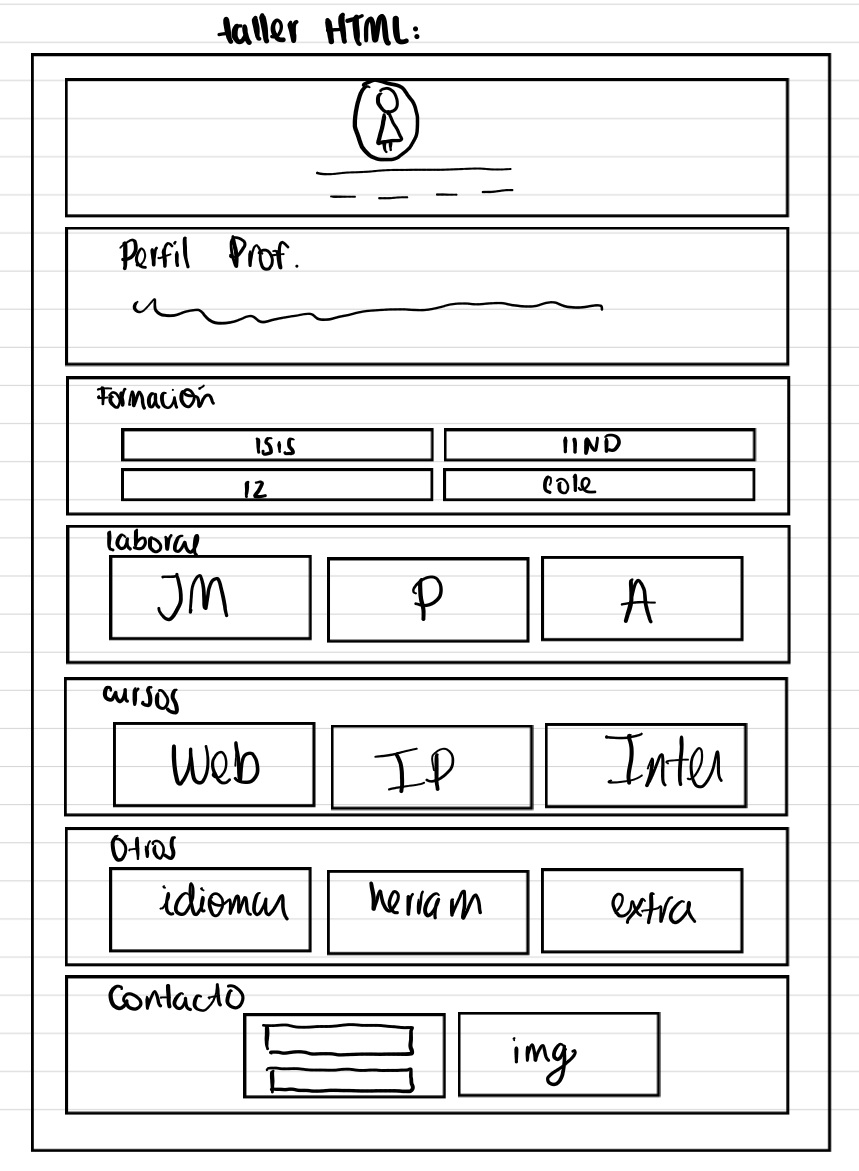 taller HTML:
Perfil Prof.
Formación
ISIS
IIND
12
Cole
laboral
JM
P
A
cursos
Web
IP
Inter
Otros
idiomas
herram
extra
Contacto
img